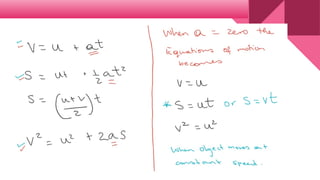 V = u + at
S = ut + ½at²
S = (u+v/2)t
V² = u² + 2as
When a = zero the
Equations of motion
becomes
V = u
* S = ut or S = vt
V² = u²
When object moves at
constant speed.